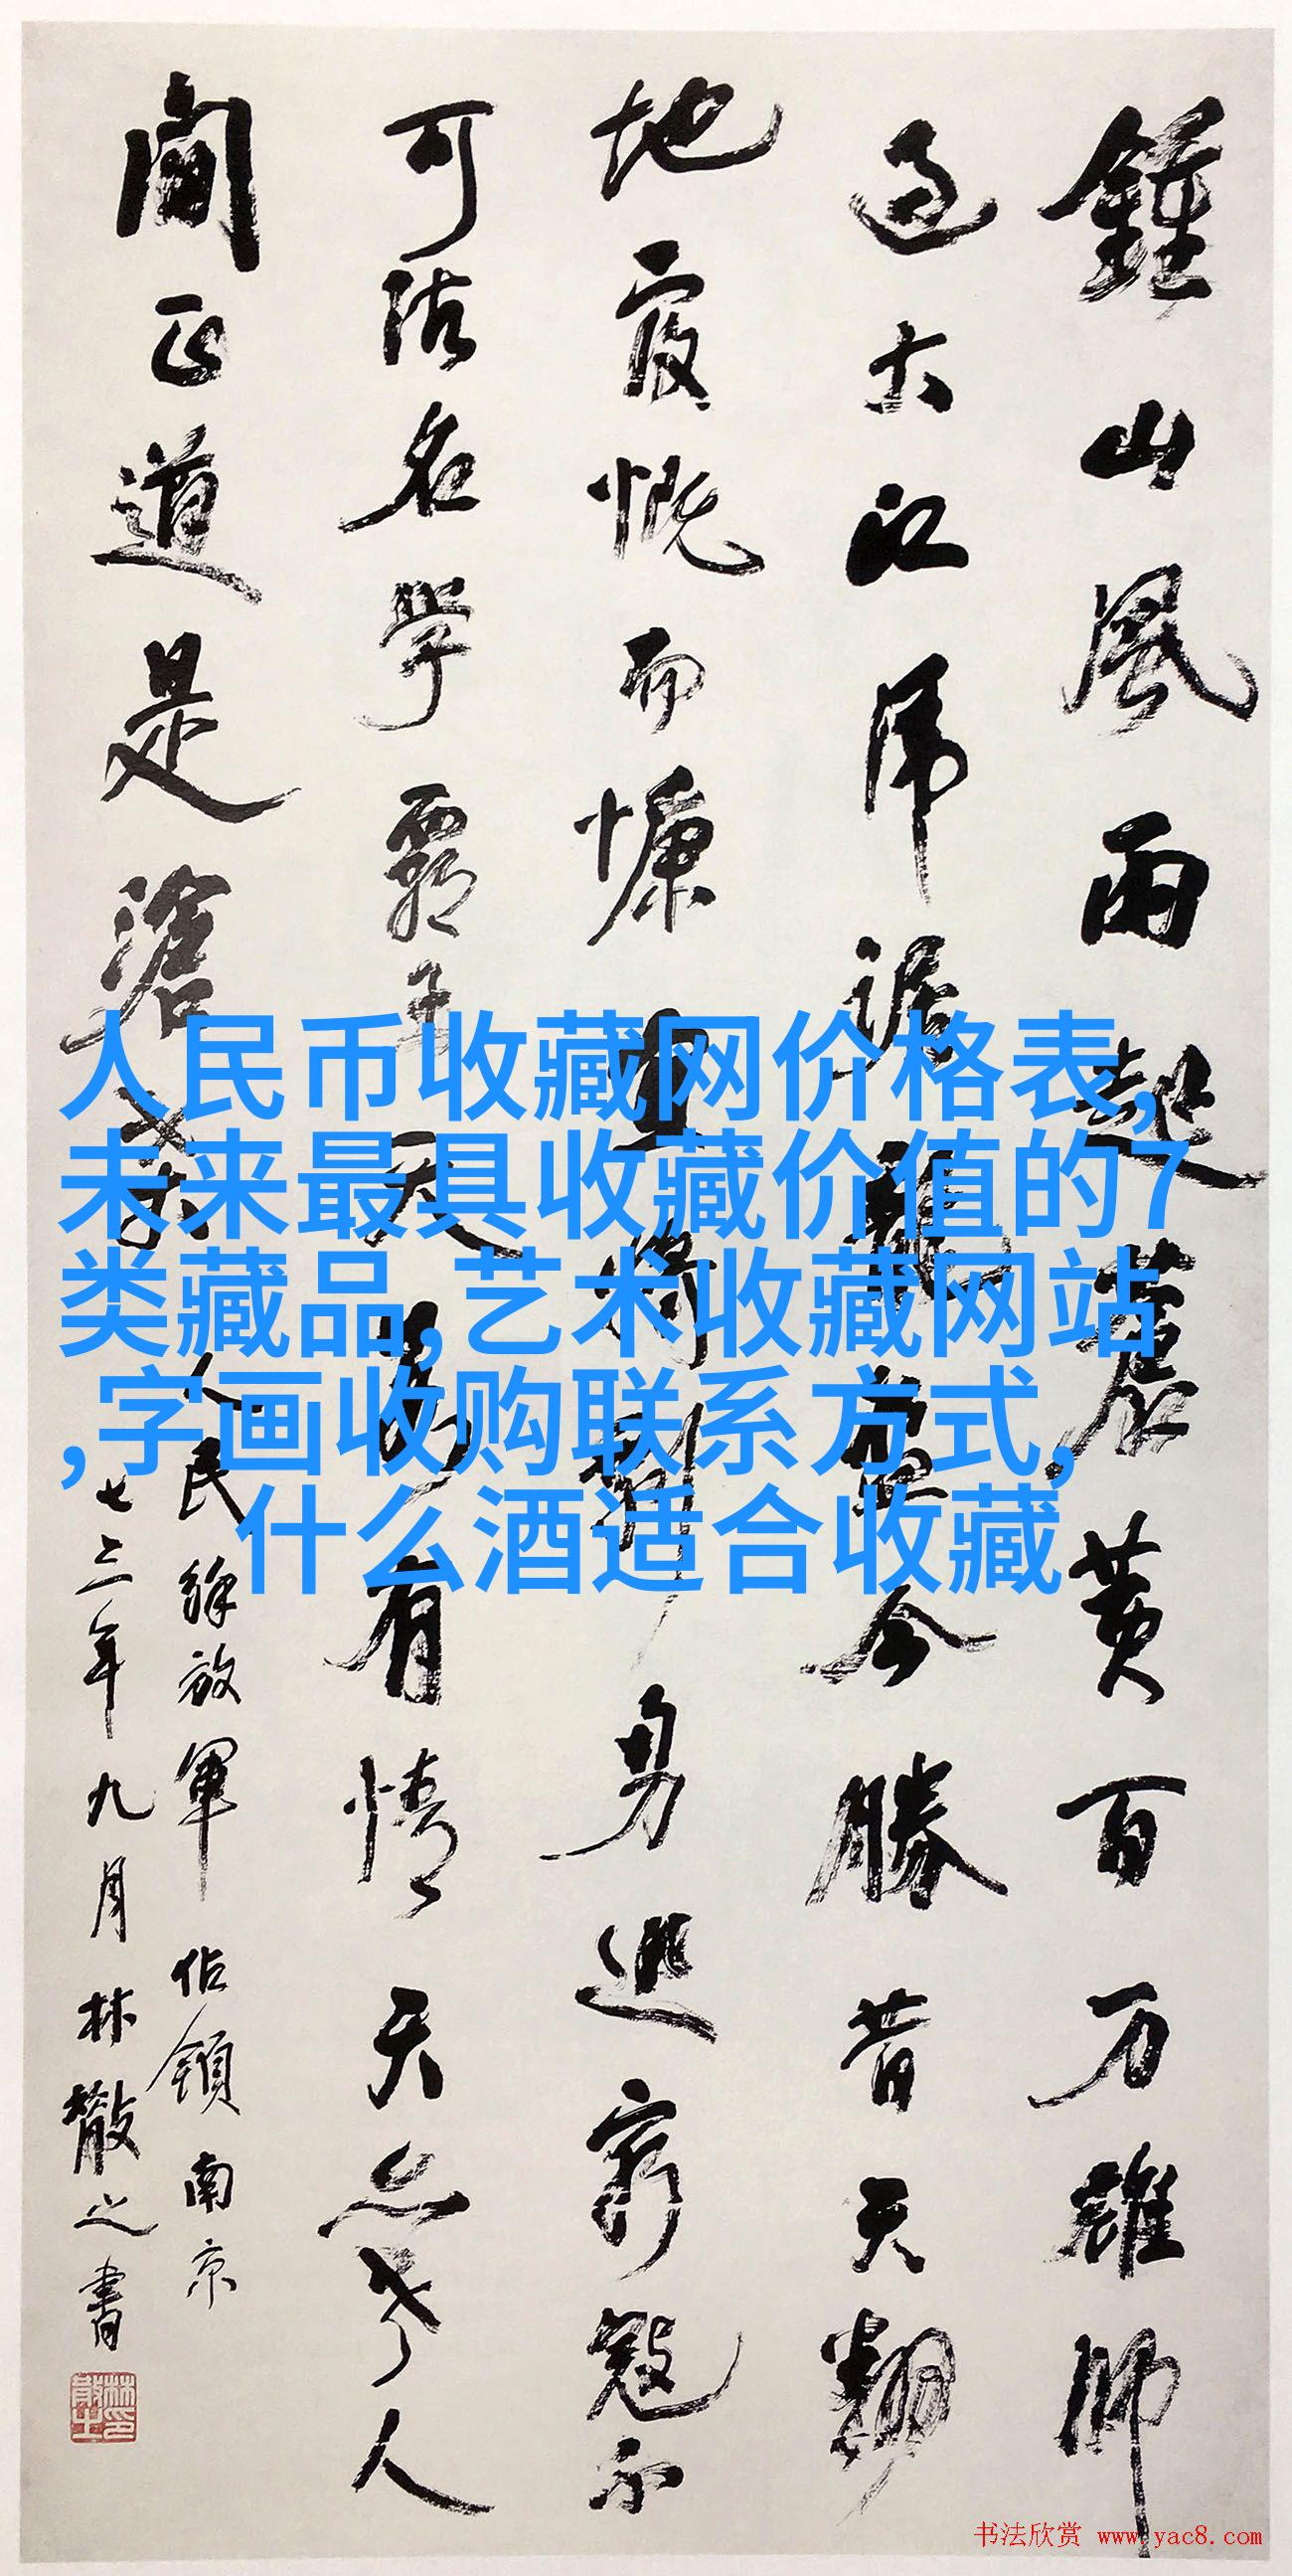 鍾山風雨起蒼黄百万雄師
过大江虎踞龍盤今勝昔天翻
地覆慨而慷宜将剩勇追窮寇不
可沽名學霸王天若有情天亦老人
間正道是滄桑
人民解放軍佔領南京
七三年九月林散之書
人民币收藏网价格表,
未来最具收藏价值的7
类藏品,艺术收藏网站
,字画收购联系方式,
什么酒适合收藏
书法欣赏 www.yac8.com